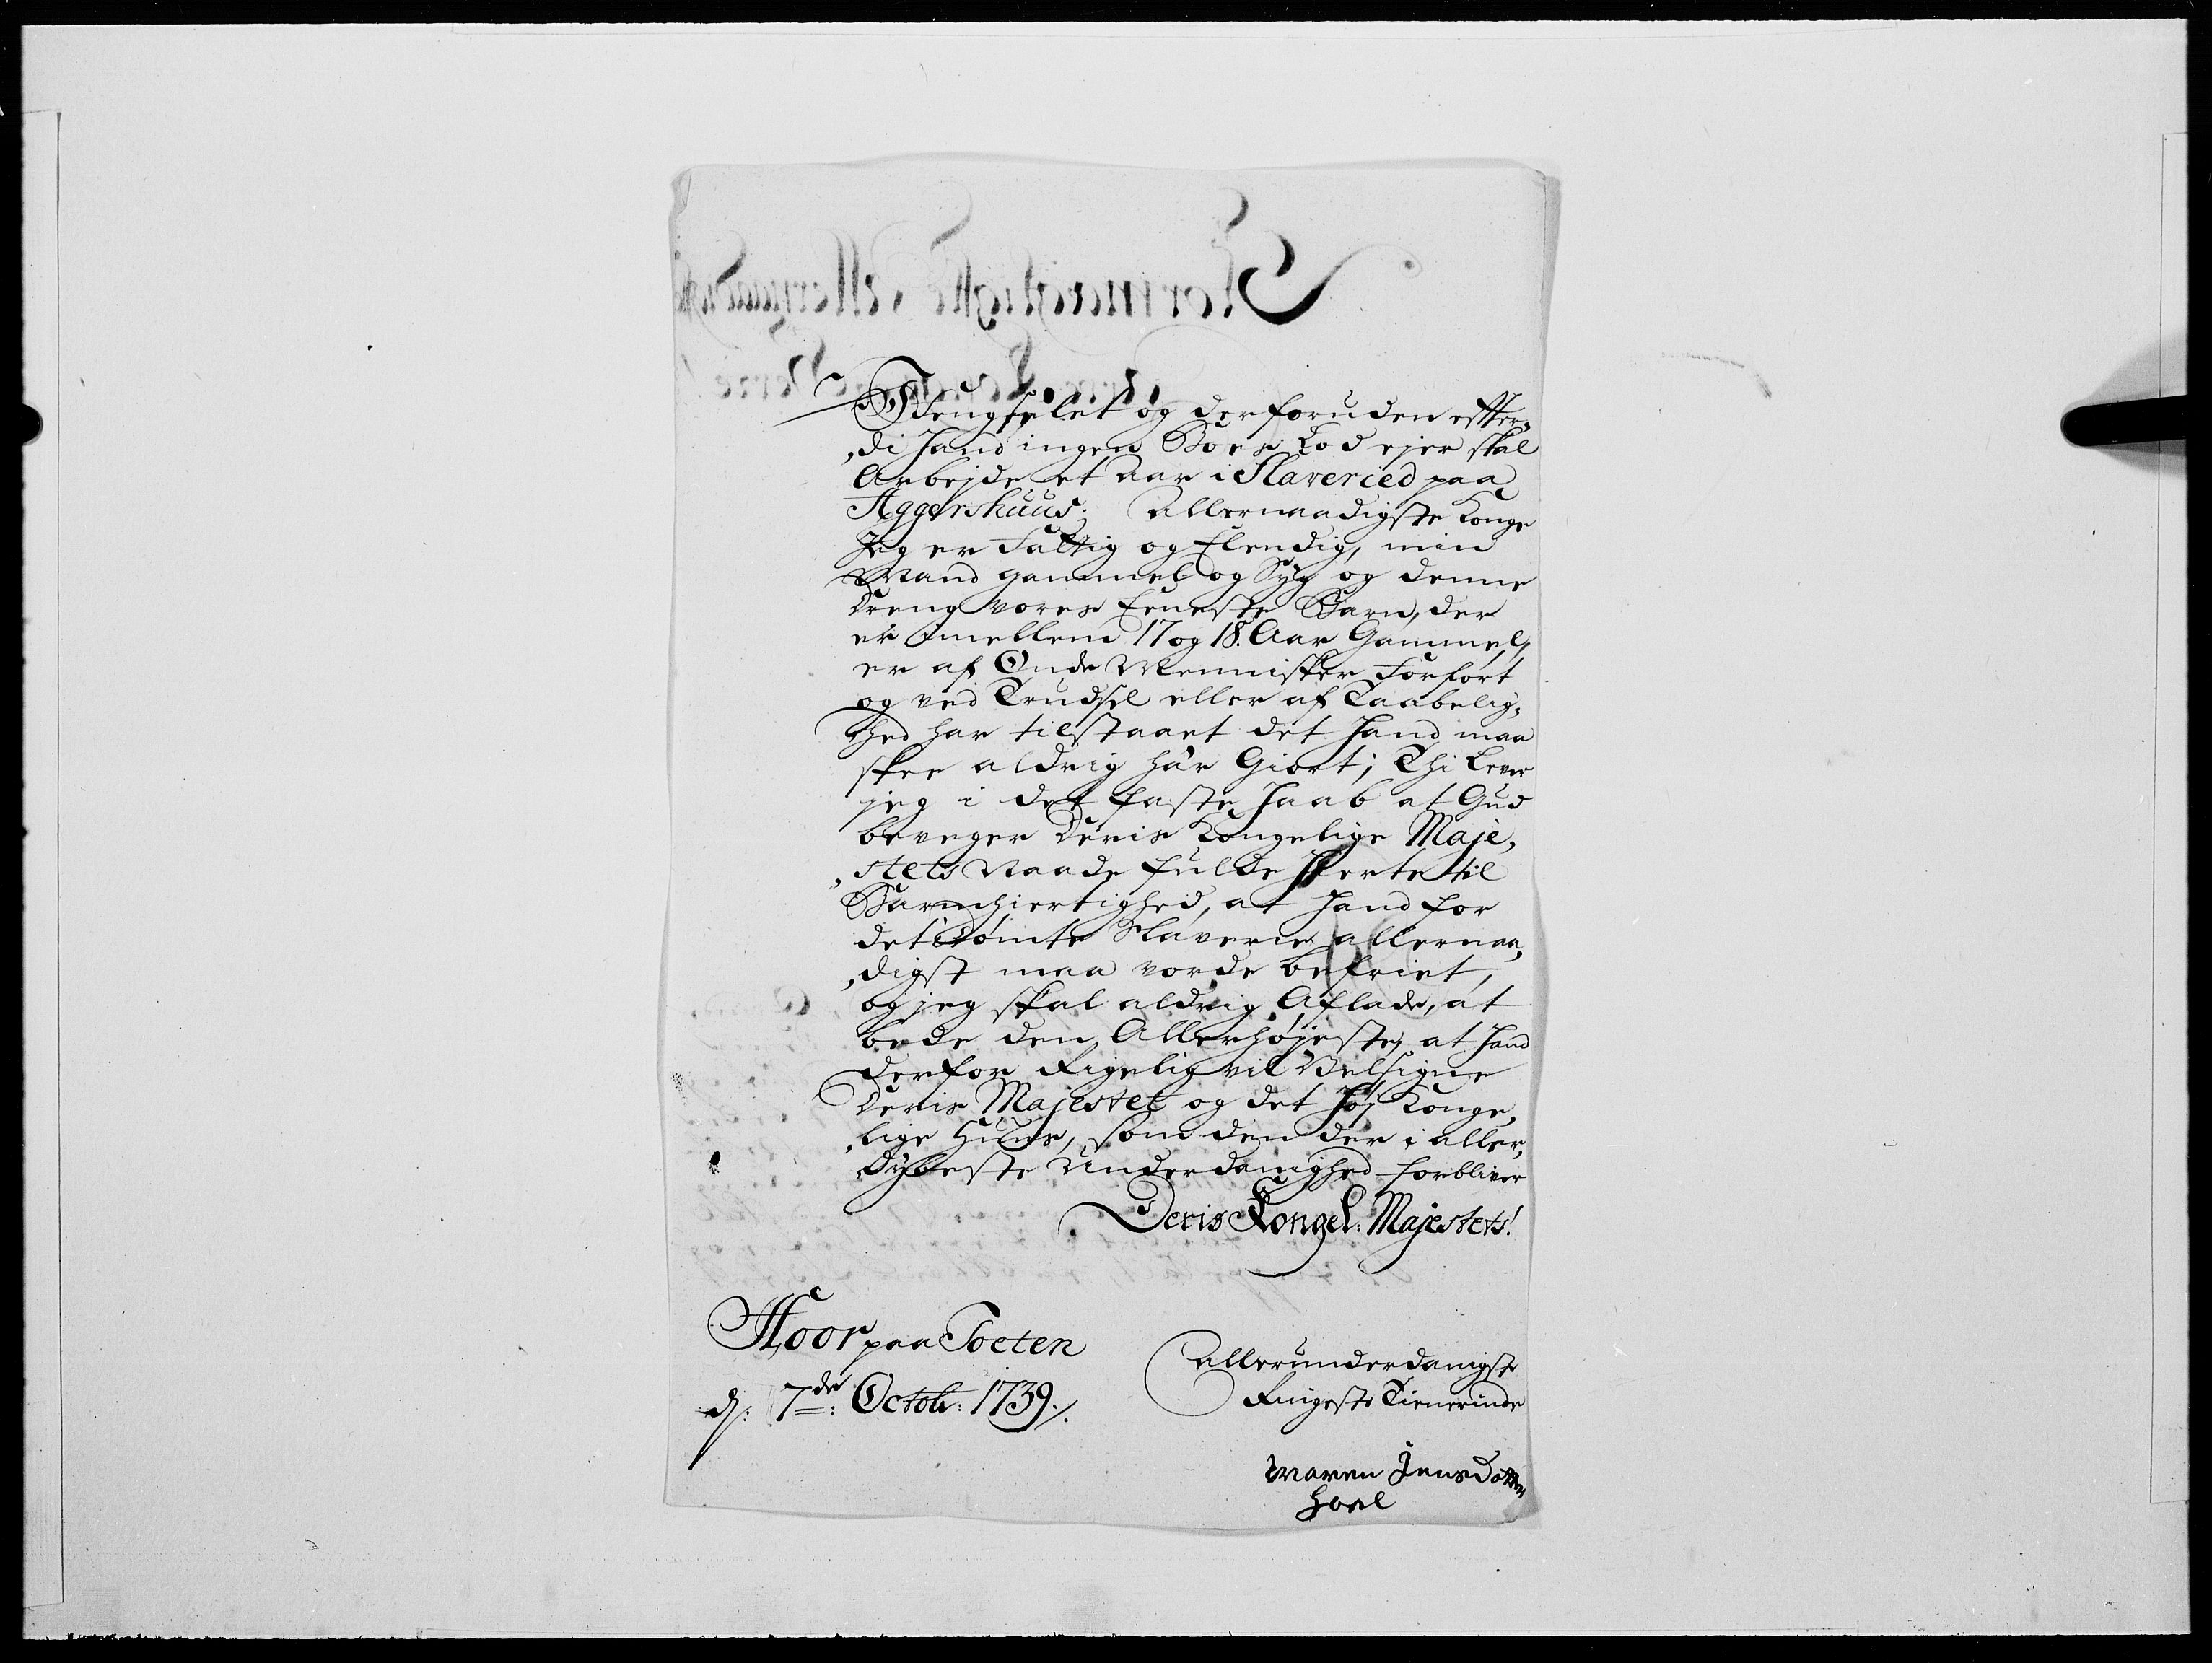 Fengselet og derforuden effter,,
,,di hand ingen Boes Lod ejer skal
Arbejde et aar i Slaveried paa
Aggershuus; Allernaadigste Konge
Jeg er Fattig og Elendig, min
Mand gammel og Syg og denne
Dreng vores Eeneste Barn, der
er imellem 17 og 18. Aar Gammel,
er af Onde Mennisker Forført
og ved Trudsel eller af Taabelig,,
hed har tilstaaet det hand maa
skee aldrig har Giort; Thi Lever
jeg i det faste Haab at Gud
beveger Deris Kongelige Maje,,
,,stets Naade fulde Hierte til
Barmhiertighed, at hand for
det idømte Slaverie allernaa,,
,,digst maa vorde befriet,
og jeg skal aldrig Aflade, at
bede den Allerhøjeste, at hand
derfor Rigelig vil Velsigne
Deris Majestet og det høj Konge,,
,,lige Huus, som den der i aller,,
dybeste Underdanighed forbliver
Deris Kongel: Majestets!
Hoor paa Toeten
d: 7de: Octobr: 1739.
Allerunderdanigste
Ringeste Tienerinde
Maren Jensdatter
Hoel